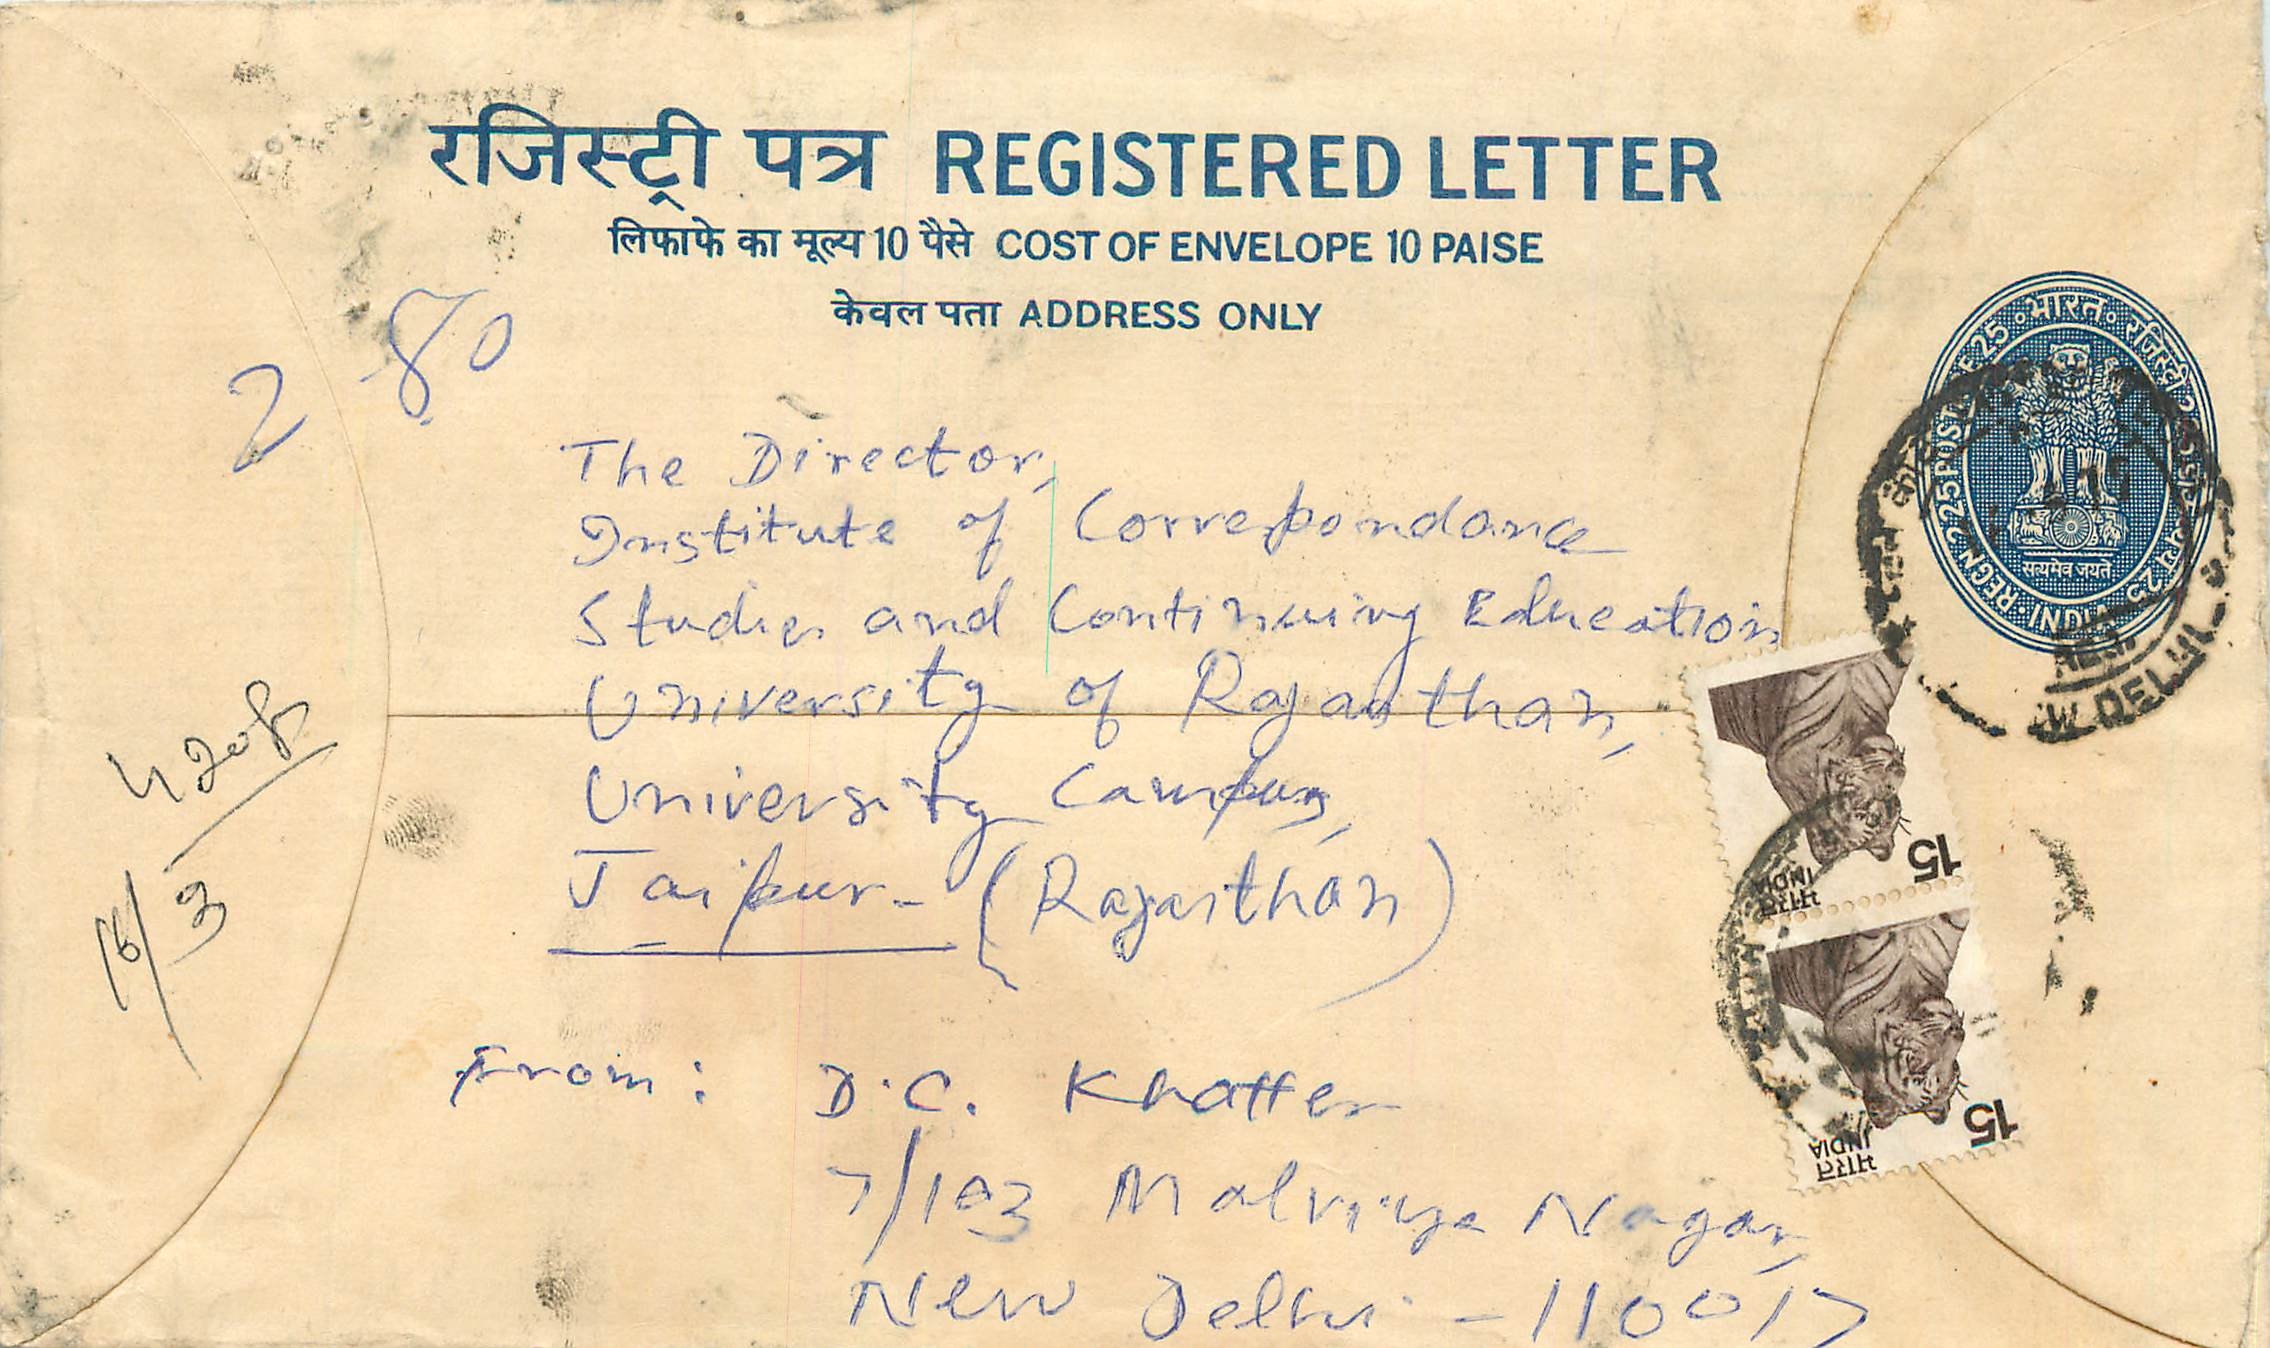 रजिस्ट्री पत्र REGISTERED LETTER
लिफाफे का मूल्य 10 पैसे COST OF ENVELOPE 10 PAISE
केवल पता ADDRESS ONLY
2 80
भारत रजिस्ट्री
REGN 225 POSTAGE 25
सत्यमेव जयते
INDIA
W DELHI
The Director,
Institute of Correspondance
Studies and Continuing Education
University of Rajasthan,
University Campus,
Jaipur - (Rajasthan)
16/3
15
भारत
INDIA
15
भारत
INDIA
From: D.C. Khatter
7/103 Malviya Nagar,
New Delhi - 110017